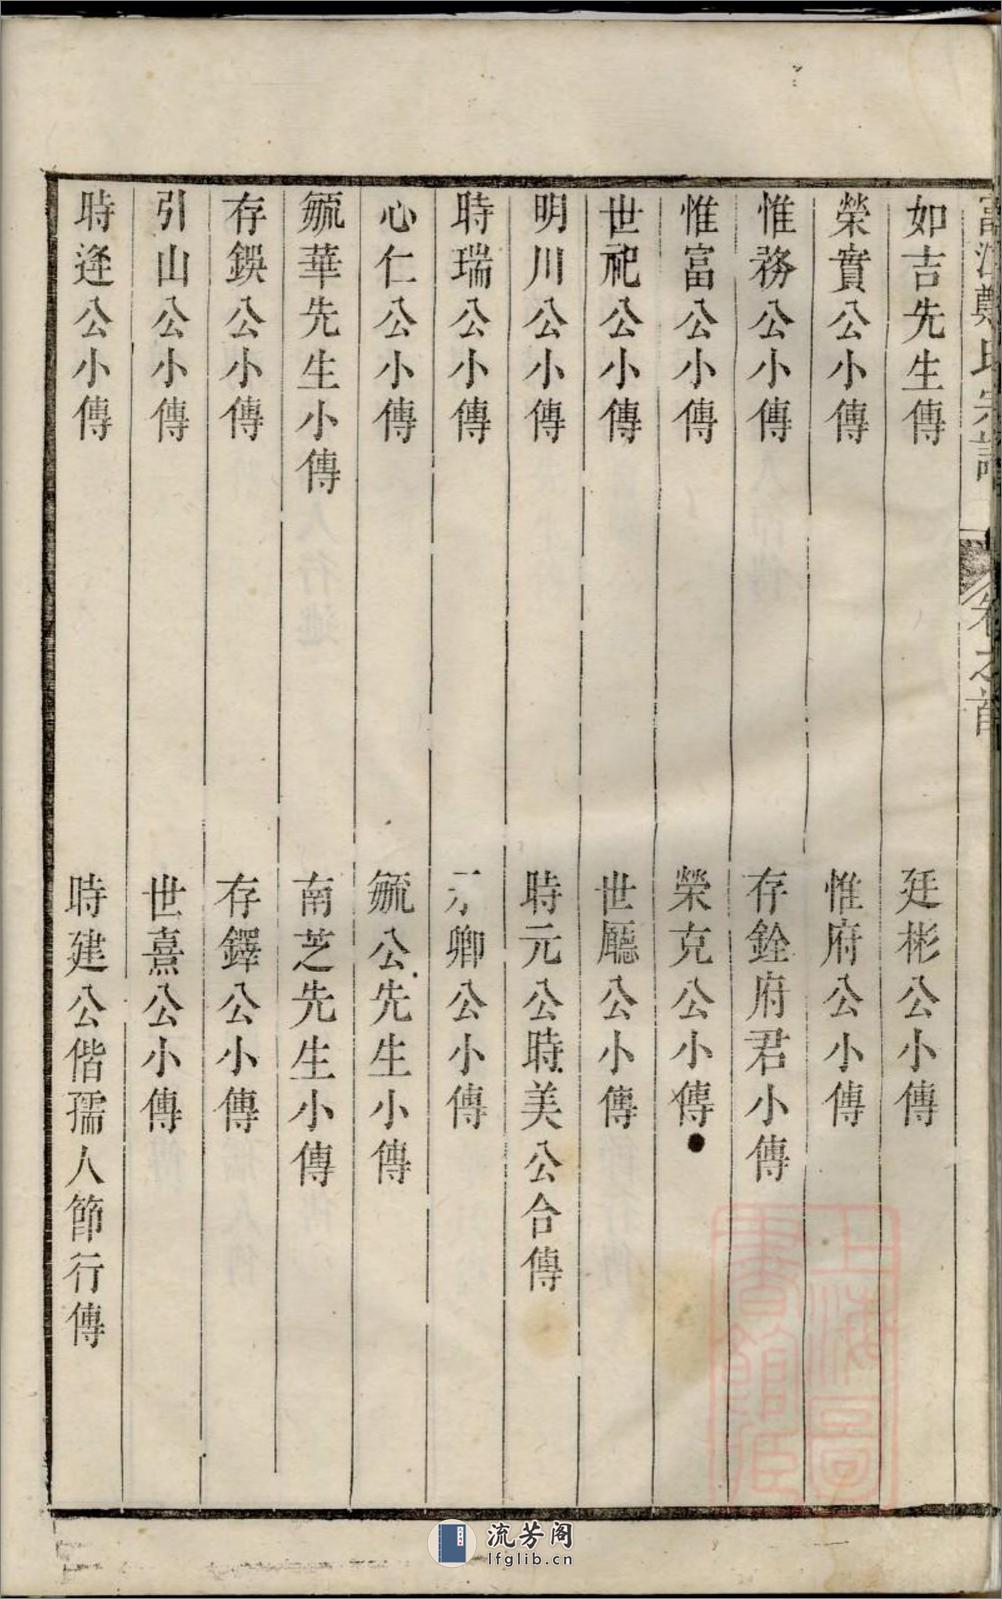 富江鄭氏宗譜
卷之首
如吉先生傳
廷彬公小傳
榮實公小傳
惟府公小傳
惟務公小傳
存銓府君小傳
惟富公小傳
榮克公小傳
世祀公小傳
世廳公小傳
明川公小傳
時元公時美公合傳
時瑞公小傳
卿公小傳
心仁公小傳
毓公先生小傳
毓華先生小傳
南芝先生小傳
存鏌公小傳
存鐸公小傳
引山公小傳
世熹公小傳
時逢公小傳
時建公偕孺人節行傳
上海圖書館藏
流芳阁
lfglib.cn